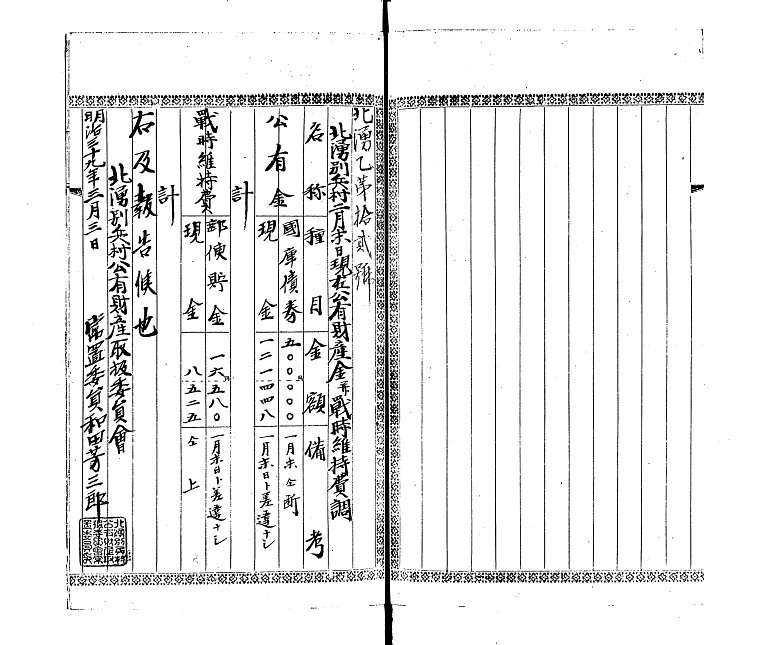 北湧乙第拾貳號
北湧別兵村二月末日現在公有財産金并戰時維持費調
名称 種目 金額 備考
公有金 國庫債券 五〇〇〇〇〇 一月末仝断
現金 一二一四四八 一月末日ト差違ナシ
計
戰時維持費 郵便貯金 一六五八〇 一月末日ト差違ナシ
現金 八五二五 仝上
計
右及報告候也
北湧別兵村公有財産取扱委員會
明治三十九年三月三日 常置委員和田芳三郎